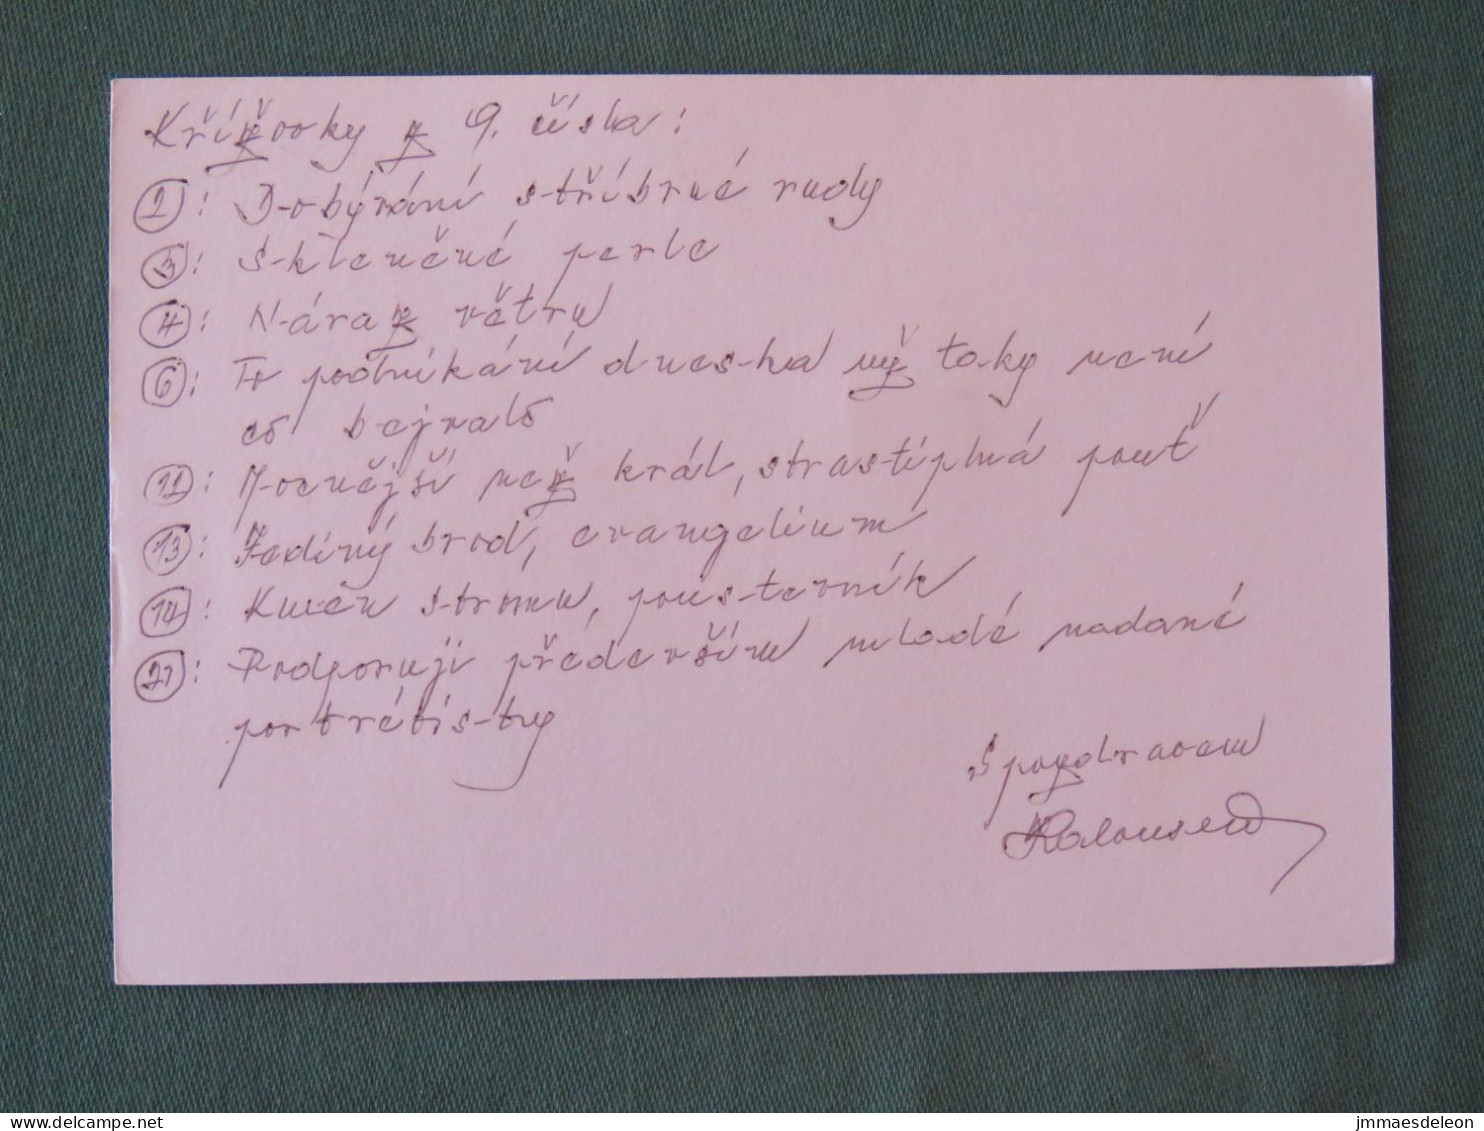 Křížovky z 9. čísla:
2: Dobývání stříbrné rudy
3: Skleněné perle
4: Náraz větru
6: To podnikání dneska už taky není
co bejvalo
12: Mocnější než král, strastiplná pouť
13: Jediný brod, evangelium
14: Kmen stromu, poustevník
21: Podporuji především mladé nadané
portrétisty
S pozdravem
jmmaesdeleon